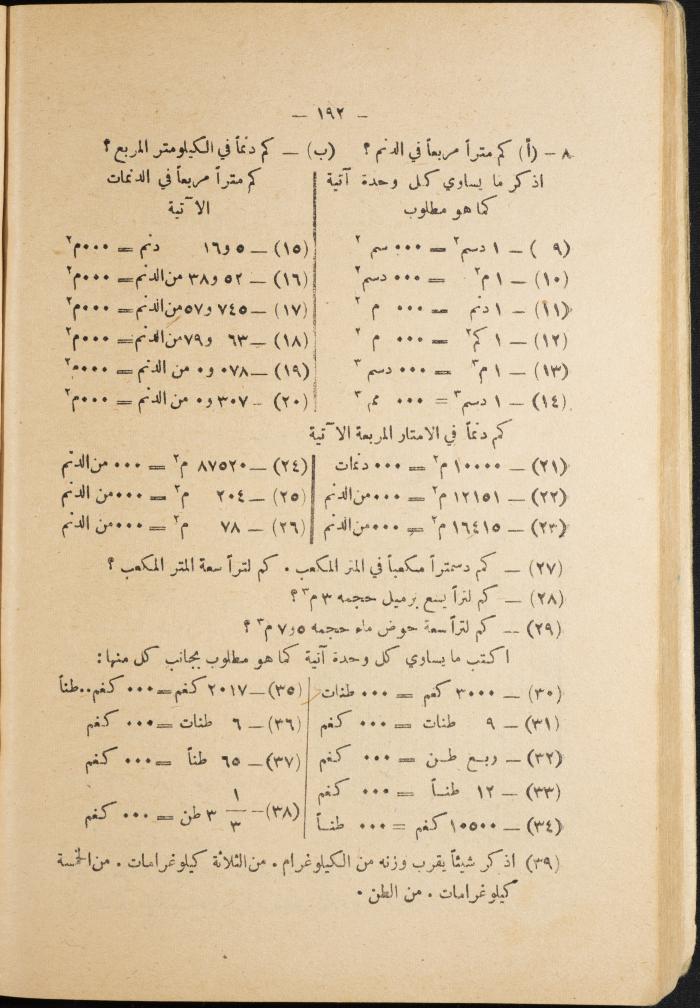 – ١٩٢ –
٨ – (أ) كم متراً مربعاً في الدنم ؟ (ب) – كم دنماً في الكيلومتر المربع ؟
اذكر ما يساوي كل وحدة آتية
كما هو مطلوب
(٩) – ١ دسم٢ = ٠٠٠ سم ٢
(١٠) – ١ م٢ = ٠٠٠ دسم٢
(١١) – ١ دنم = ٠٠٠ م ٢
(١٢) – ١ كم٢ = ٠٠٠ م ٢
(١٣) – ١ م٣ = ٠٠٠ دسم ٣
(١٤) – ١ دسم٣ = ٠٠٠ مم ٣
كم متراً مربعاً في الدنمات
الآتية
(١٥) – ٥و١٦ دنم = ٠٠٠م٢
(١٦) – ٥٢ و٣٨ من الدنم = ٠٠٠م٢
(١٧) – ٧٤٥ و٥٧ من الدنم = ٠٠٠م٢
(١٨) – ٦٣ و٧٩ من الدنم = ٠٠٠م٢
(١٩) – ٠٧٨ و٠ من الدنم = ٠٠٠م٢
(٢٠) – ٣٠٧ و٠ من الدنم = ٠٠٠م٢
كم دنماً في الامتار المربعة الآتية
(٢١) – ١٠٠٠٠ م٢ = ٠٠٠ دنمات
(٢٢) – ١٢١٥١ م٢ = ٠٠٠ من الدنم
(٢٣) – ١٦٤١٥ م٢ = ٠٠٠ من الدنم
(٢٤) – ٨٧٥٢٠ م٢ = ٠٠٠ من الدنم
(٢٥) – ٢٠٤ م٢ = ٠٠٠ من الدنم
(٢٦) – ٧٨ م٢ = ٠٠٠ من الدنم
(٢٧) – كم دسمتراً مكعباً في المتر المكعب . كم لتراً سعة المتر المكعب ؟
(٢٨) – كم لتراً يسع برميل حجمه ٣ م٣ ؟
(٢٩) – كم لتراً سعة حوض ماء حجمه ٥و٧ م٣ ؟
اكتب ما يساوي كل وحدة آتية كما هو مطلوب بجانب كل منها :
(٣٠) – ٣٠٠٠ كغم = ٠٠٠ طنات
(٣١) – ٩ طنات = ٠٠٠ كغم
(٣٢) – ربع طن = ٠٠٠ كغم
(٣٣) – ١٢ طناً = ٠٠٠ كغم
(٣٤) – ١٠٥٠٠ كغم = ٠٠٠ طناً
(٣٥) – ٢٠١٧ كغم = ٠٠٠ كغم..طناً
(٣٦) – ٦ طنات = ٠٠٠ كغم
(٣٧) – ٦٥ طناً = ٠٠٠ كغم
(٣٨) – ١/٣ ٣ طن = ٠٠٠ كغم
(٣٩) اذكر شيئاً يقرب وزنه من الكيلوغرام . من الثلاثة كيلوغرامات . من الخمسة
كيلوغرامات . من الطن .